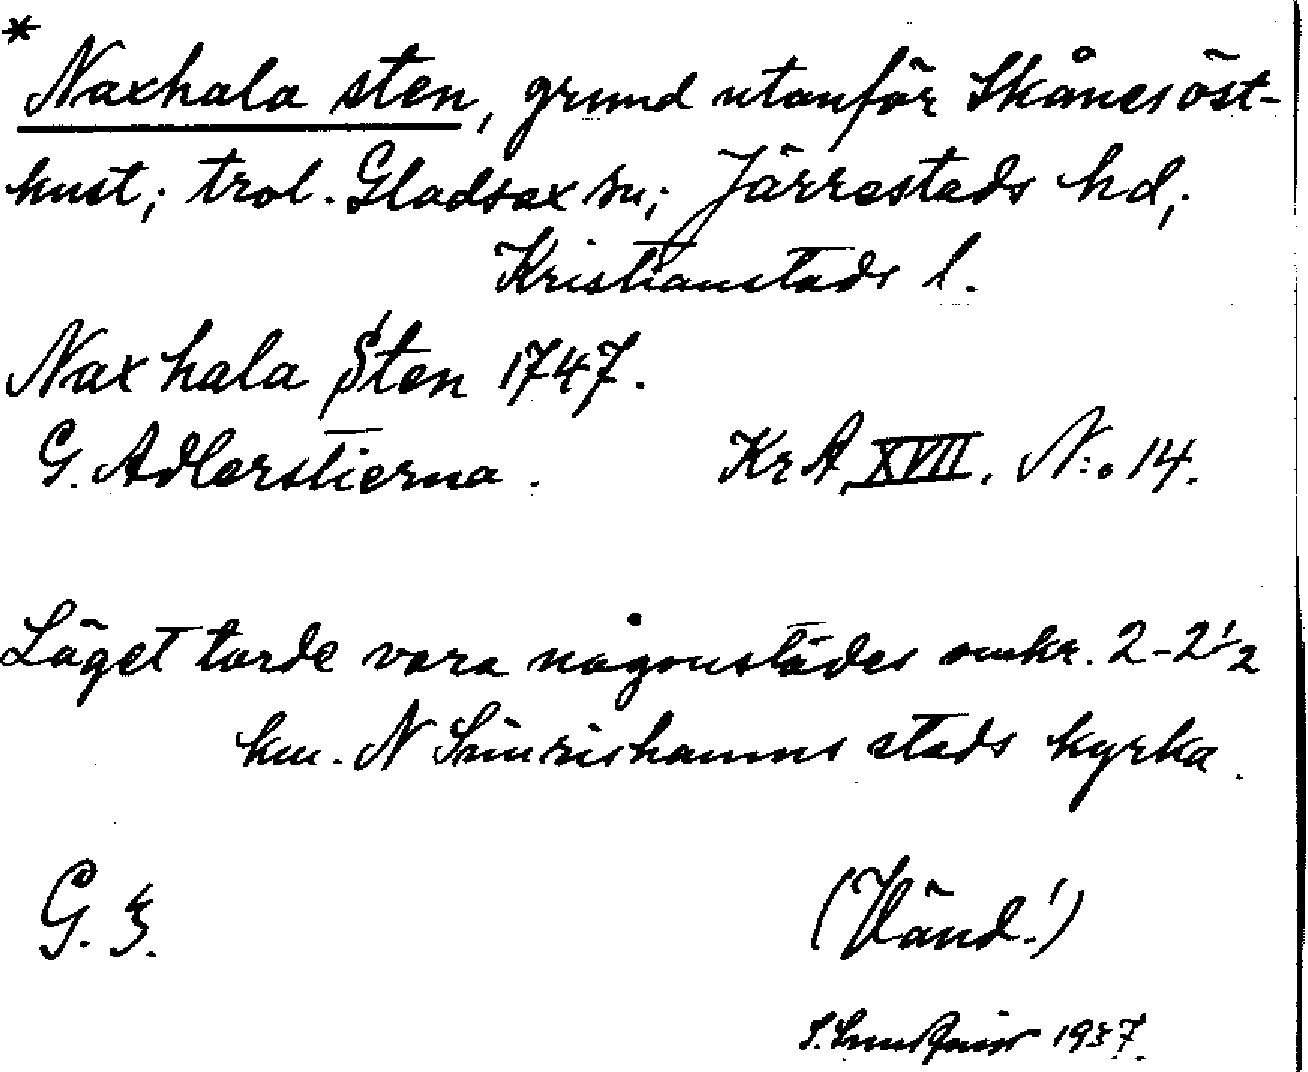 * Naxhala sten, grund utanför Skånes öst-
kust; trol. Gladsax sn; Järrestads hd,
Kristianstads l.
Naxhala Sten 1747.
G. Adlerstierna. KrA XVII. N:o 14.
Läget torde vara någonstädes omkr. 2-2 1/2
km. N Simrishamns stads kyrka.
G. 3.
(Vänd!)
S. Lundqvist 1937.